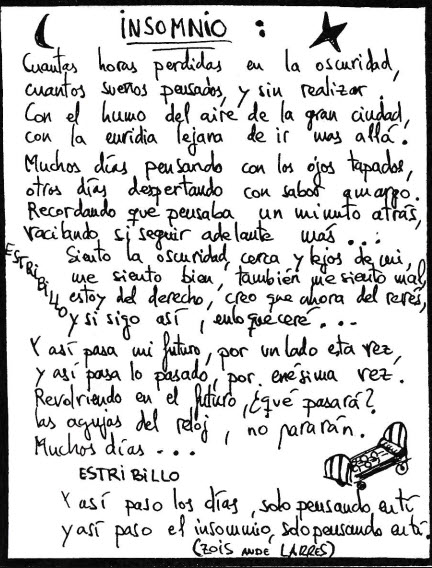 INSOMNIO :
Cuantas horas perdidas en la oscuridad,
cuantos sueños pensados, y sin realizar.
Con el humo del aire de la gran ciudad,
con la envidia lejana de ir mas allá.
Muchos días pensando con los ojos tapados,
otros días despertando con sabor amargo.
Recordando que pensaba un minuto atrás,
vacilando si seguir adelante más...
ESTRIBILLO
Siento la oscuridad, cerca y lejos de mi,
me siento bien, también me siento mal,
estoy del derecho, creo que ahora del revés,
y si sigo así, enloqueceré...
Y así pasa mi futuro, por un lado esta vez,
y así pasa lo pasado, por enésima vez.
Revolviendo en el futuro, ¿qué pasará?
las agujas del reloj, no pararán.
Muchos días...
ESTRIBILLO
Y así paso los días, solo pensando en tí
y así paso el insomnio, solo pensando en tí.
(ZOIS ANDE LARRES)